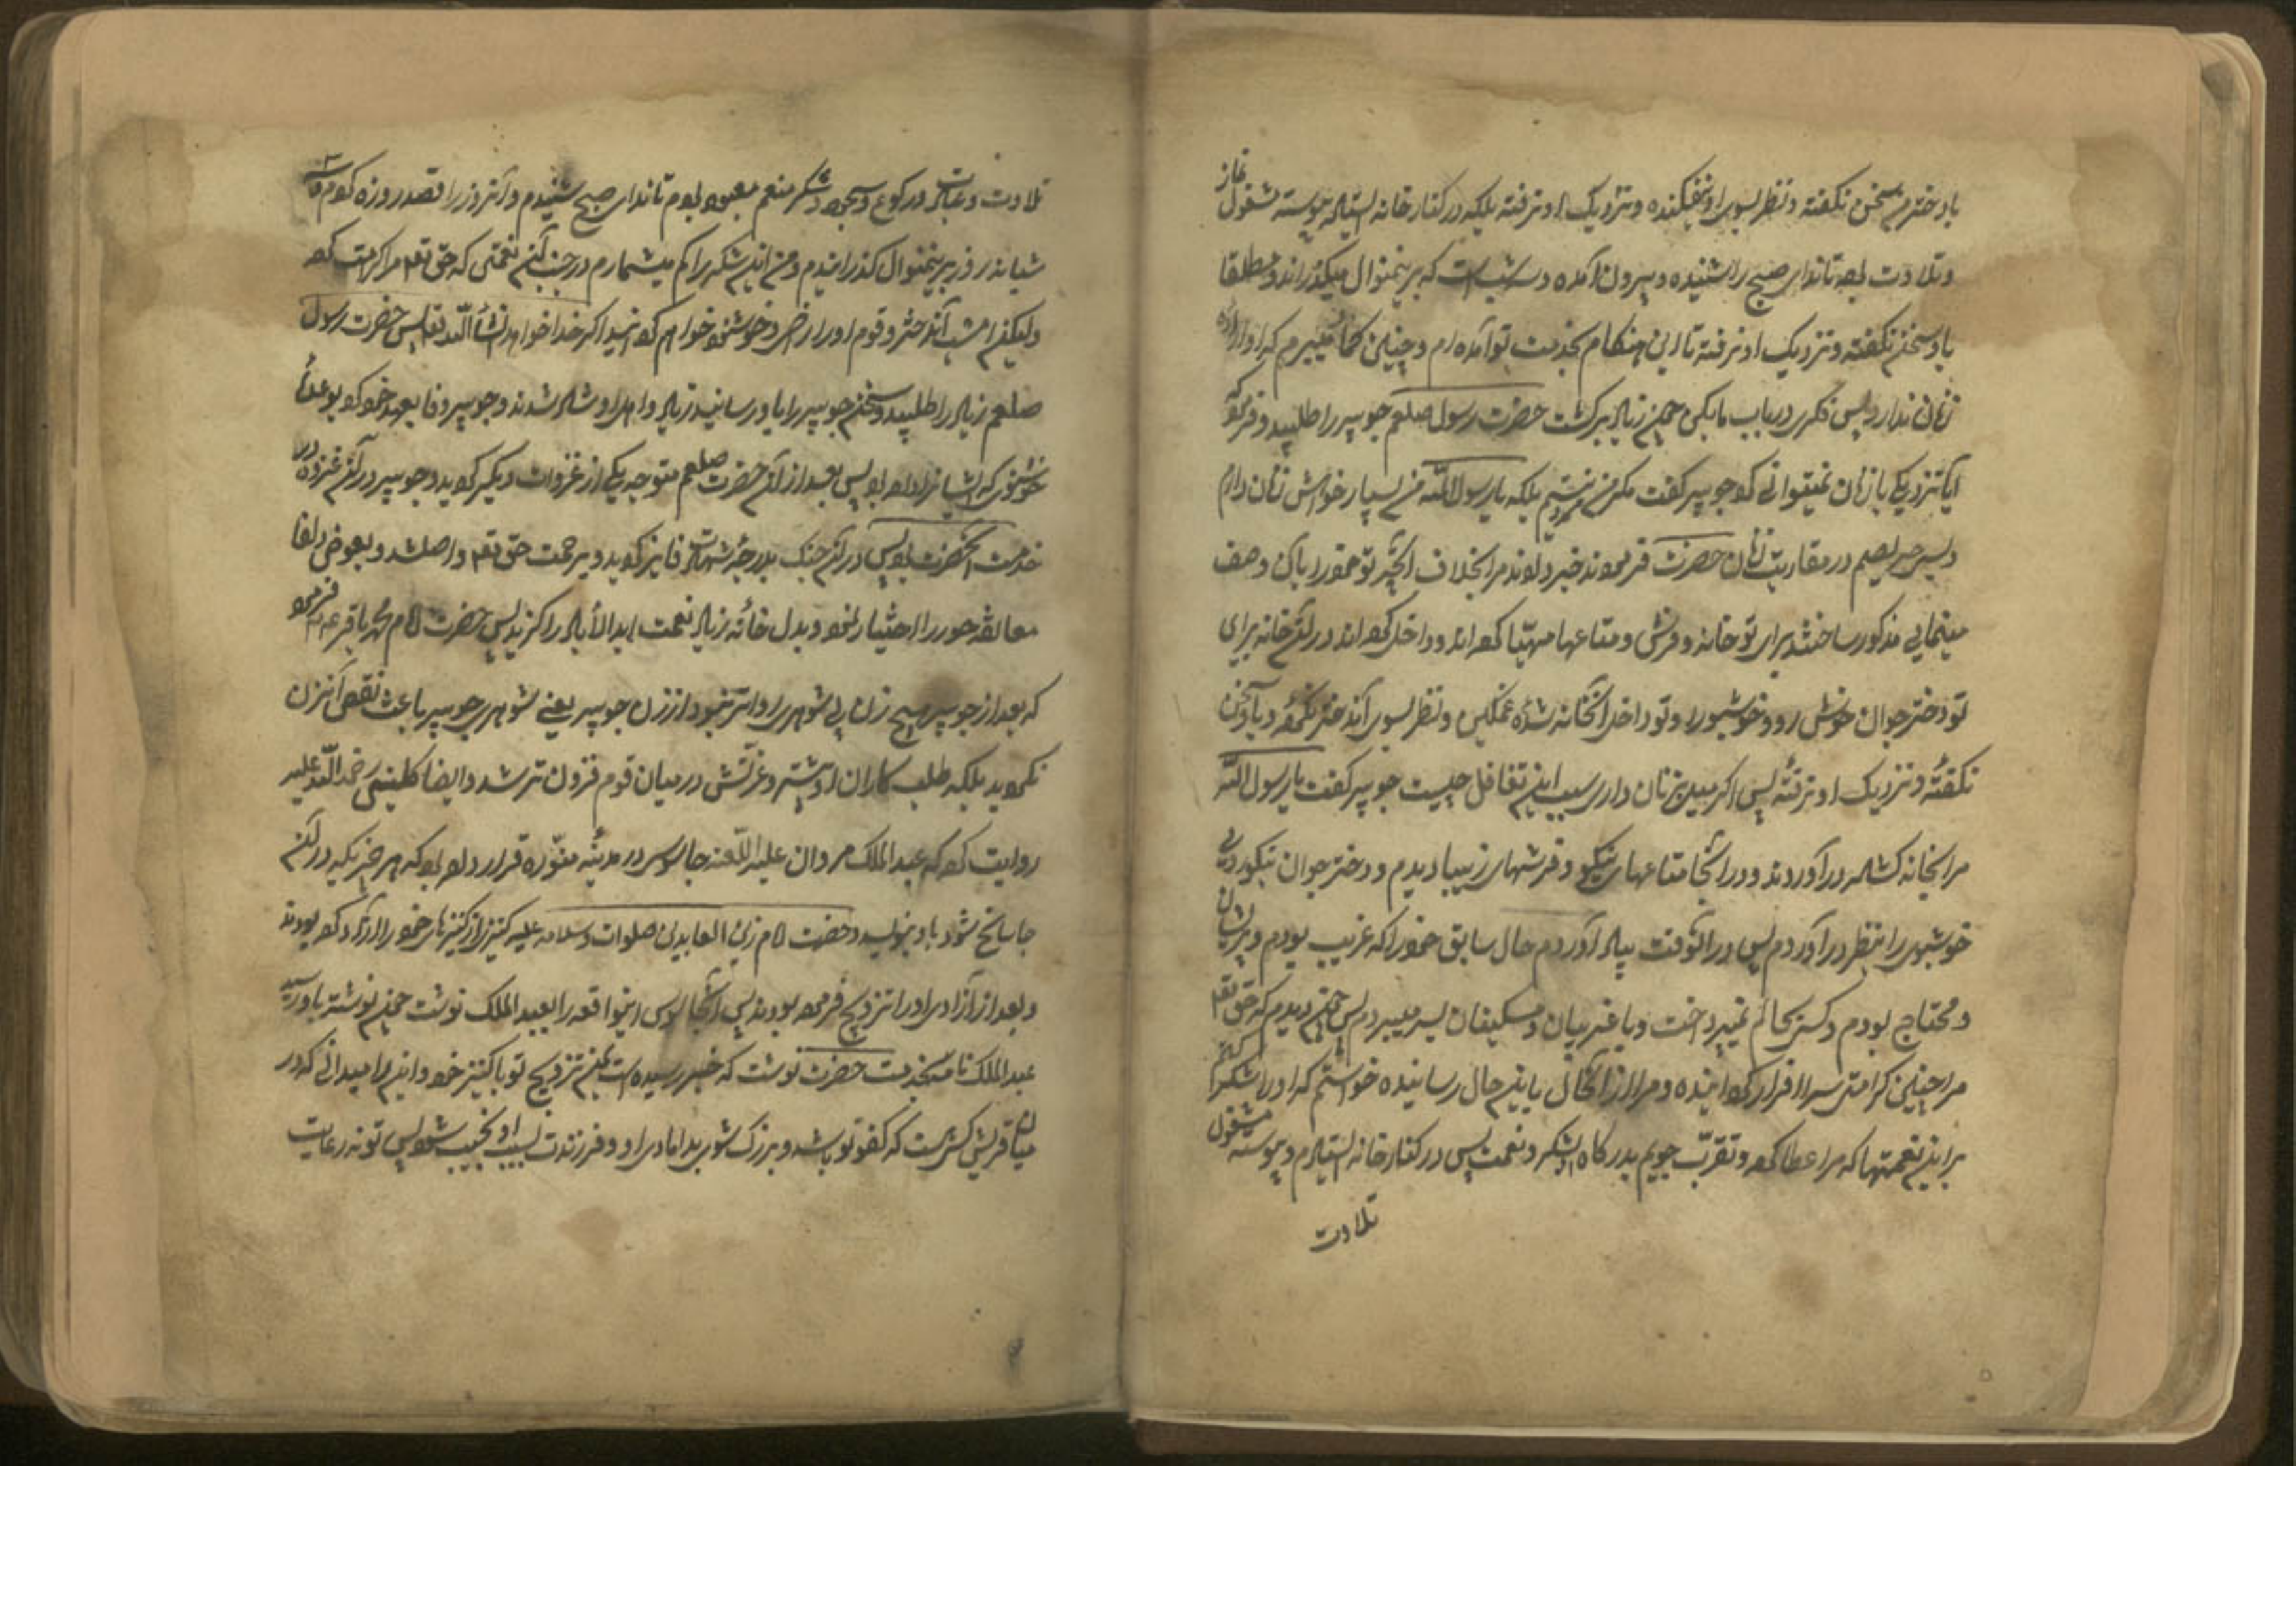 با دخترم سخن نکفته و نظر بسوی او نیفکنده و نزدیک او نرفته بلکه در کنار خانه ایستاده پیوسته مشغول نماز
و تلاوت بوده تا ندای صبح را شنیده و بیرون آمده و سه شب است که برینمنوال میکذراند و مطلقا
با او سخن نکفته و نزدیک او نرفته تا این هنکام بخدمت تو آمده ام و چنین کمان میبرم که او اراده
زنان ندارد پس فکری در باب ما بکن چون زیاد برکشت حضرت رسول صلعم جویبر را طلبید و فرمود
آیا نزدیکی با زنان نمیتوانی کرد جویبر کفت مکر من مرد نیستم بلکه یا رسول الله من بسیار خواهش زنان دارم
و بس حریصم در مقاربت زنان حضرت فرمودند خبر دادند مرا بخلاف آنچه تو خود را بآن وصف
مینمایی مذکور ساختند برای تو خانه و فرش و متاعها مهیا کرده اند و داخل کرده اند در آن خانه برای
تو دختر جوان خوش رو و خوشبو را و تو داخل آنخانه شده غمکین و نظر بسوی آن دختر نکرده و با او سخن
نکفته و نزدیک او نرفته پس اکر میل بزنان داری سبب این تغافل چیست جویبر کفت یا رسول الله
مرا بخانه کشاده درآوردند و در آنجا متاعهای نیکو و فرشهای زیبا دیدم و دختر جوان نیکوروی
خوشبوی را بنظر درآوردم پس در آنوقت بیاد آوردم حال سابق خود را که غریب بودم و پریشان
و محتاج بودم و کسی بحالم نمیپرداخت و با غریبان و مسکینان بسر میبردم پس چون دیدم که حق تعه
مرا چنین کرامتی سرافراز کردانیده و مرا از آنحال باین حال رسانیده خواستم که او را شکر کنم
براین نعمتها که مرا عطا کرده و تقرب جویم بدرکاه او بشکر و نعمت پس در کنار خانه ایستادم و پیوسته مشغول
تلاوت
تلاوت و عبادت و رکوع و سجود و شکر منعم معبود بودم تا ندای صبح شنیدم و آنروز را قصد روزه کردم و سه
شبانه روز برینمنوال کذرانیدم و من این شکر را کم میشمارم در جنب آن نعمتی که حق تعه مرا کرامت کرده
ولیکن امشب آن دختر و قوم او را راضی و خوشنود خواهم کردانید اکر خدا خواهد انشا الله تعه پس حضرت رسول
صلعم زیاد را طلبید و سخن جویبر را باو رسانید زیاد و اهل او شاد شدند و جویبر وفا بعهد خود کرد بوعده
خوشنودی که ایشانرا داده بود پس بعد از آن حضرت صلعم متوجه یکی از غزوات دیکر کردید و جویبر در آن غزوه در
خدمت آنحضرت بود پس در آن جنک بدرجهٔ شهادت فایز کردید و برحمت حق تعه واصل شد و بعوض دلفا
معانقه حور را اختیار نمود و بدل خانه زیاد نعمت ابد الآباد را کزید پس حضرت امام محمد باقر ع فرمود
که بعد از جویبر هیچ زن بی شوهری رواتر نبود از زن جویبر یعنی شوهری جویبر باعث نقص آن زن
نکردید بلکه طلب کاران او بیشتر و عزتش در میان قوم فزون تر شد و ایضا کلینی رحمه الله علیه
روایت کرده که عبد الملک مروان علیه اللعنه جاسوسی در مدینه منوره قرار داده بود که هر چیزیکه در آن
جا سانح شود باو بنویسد و حضرت امام زین العابدین صلوات و سلامه علیه کنیزی از کنیزهای خود را آزاد کرده بودند
و بعد از آزادی او را تزویج فرموده بودند پس آنجاسوس اینواقعه را بعبد الملک نوشت چون نوشته باو رسید
عبد الملک نامه بخدمت حضرت نوشت که خبر رسیده است بمن تزویج تو با کنیز خود و این را میدانی که در
میان قریش کسی هست که کفو تو باشد و بزرک شوی بدامادی او و فرزندت بسبب او نجیب شود پس تو نه رعایت